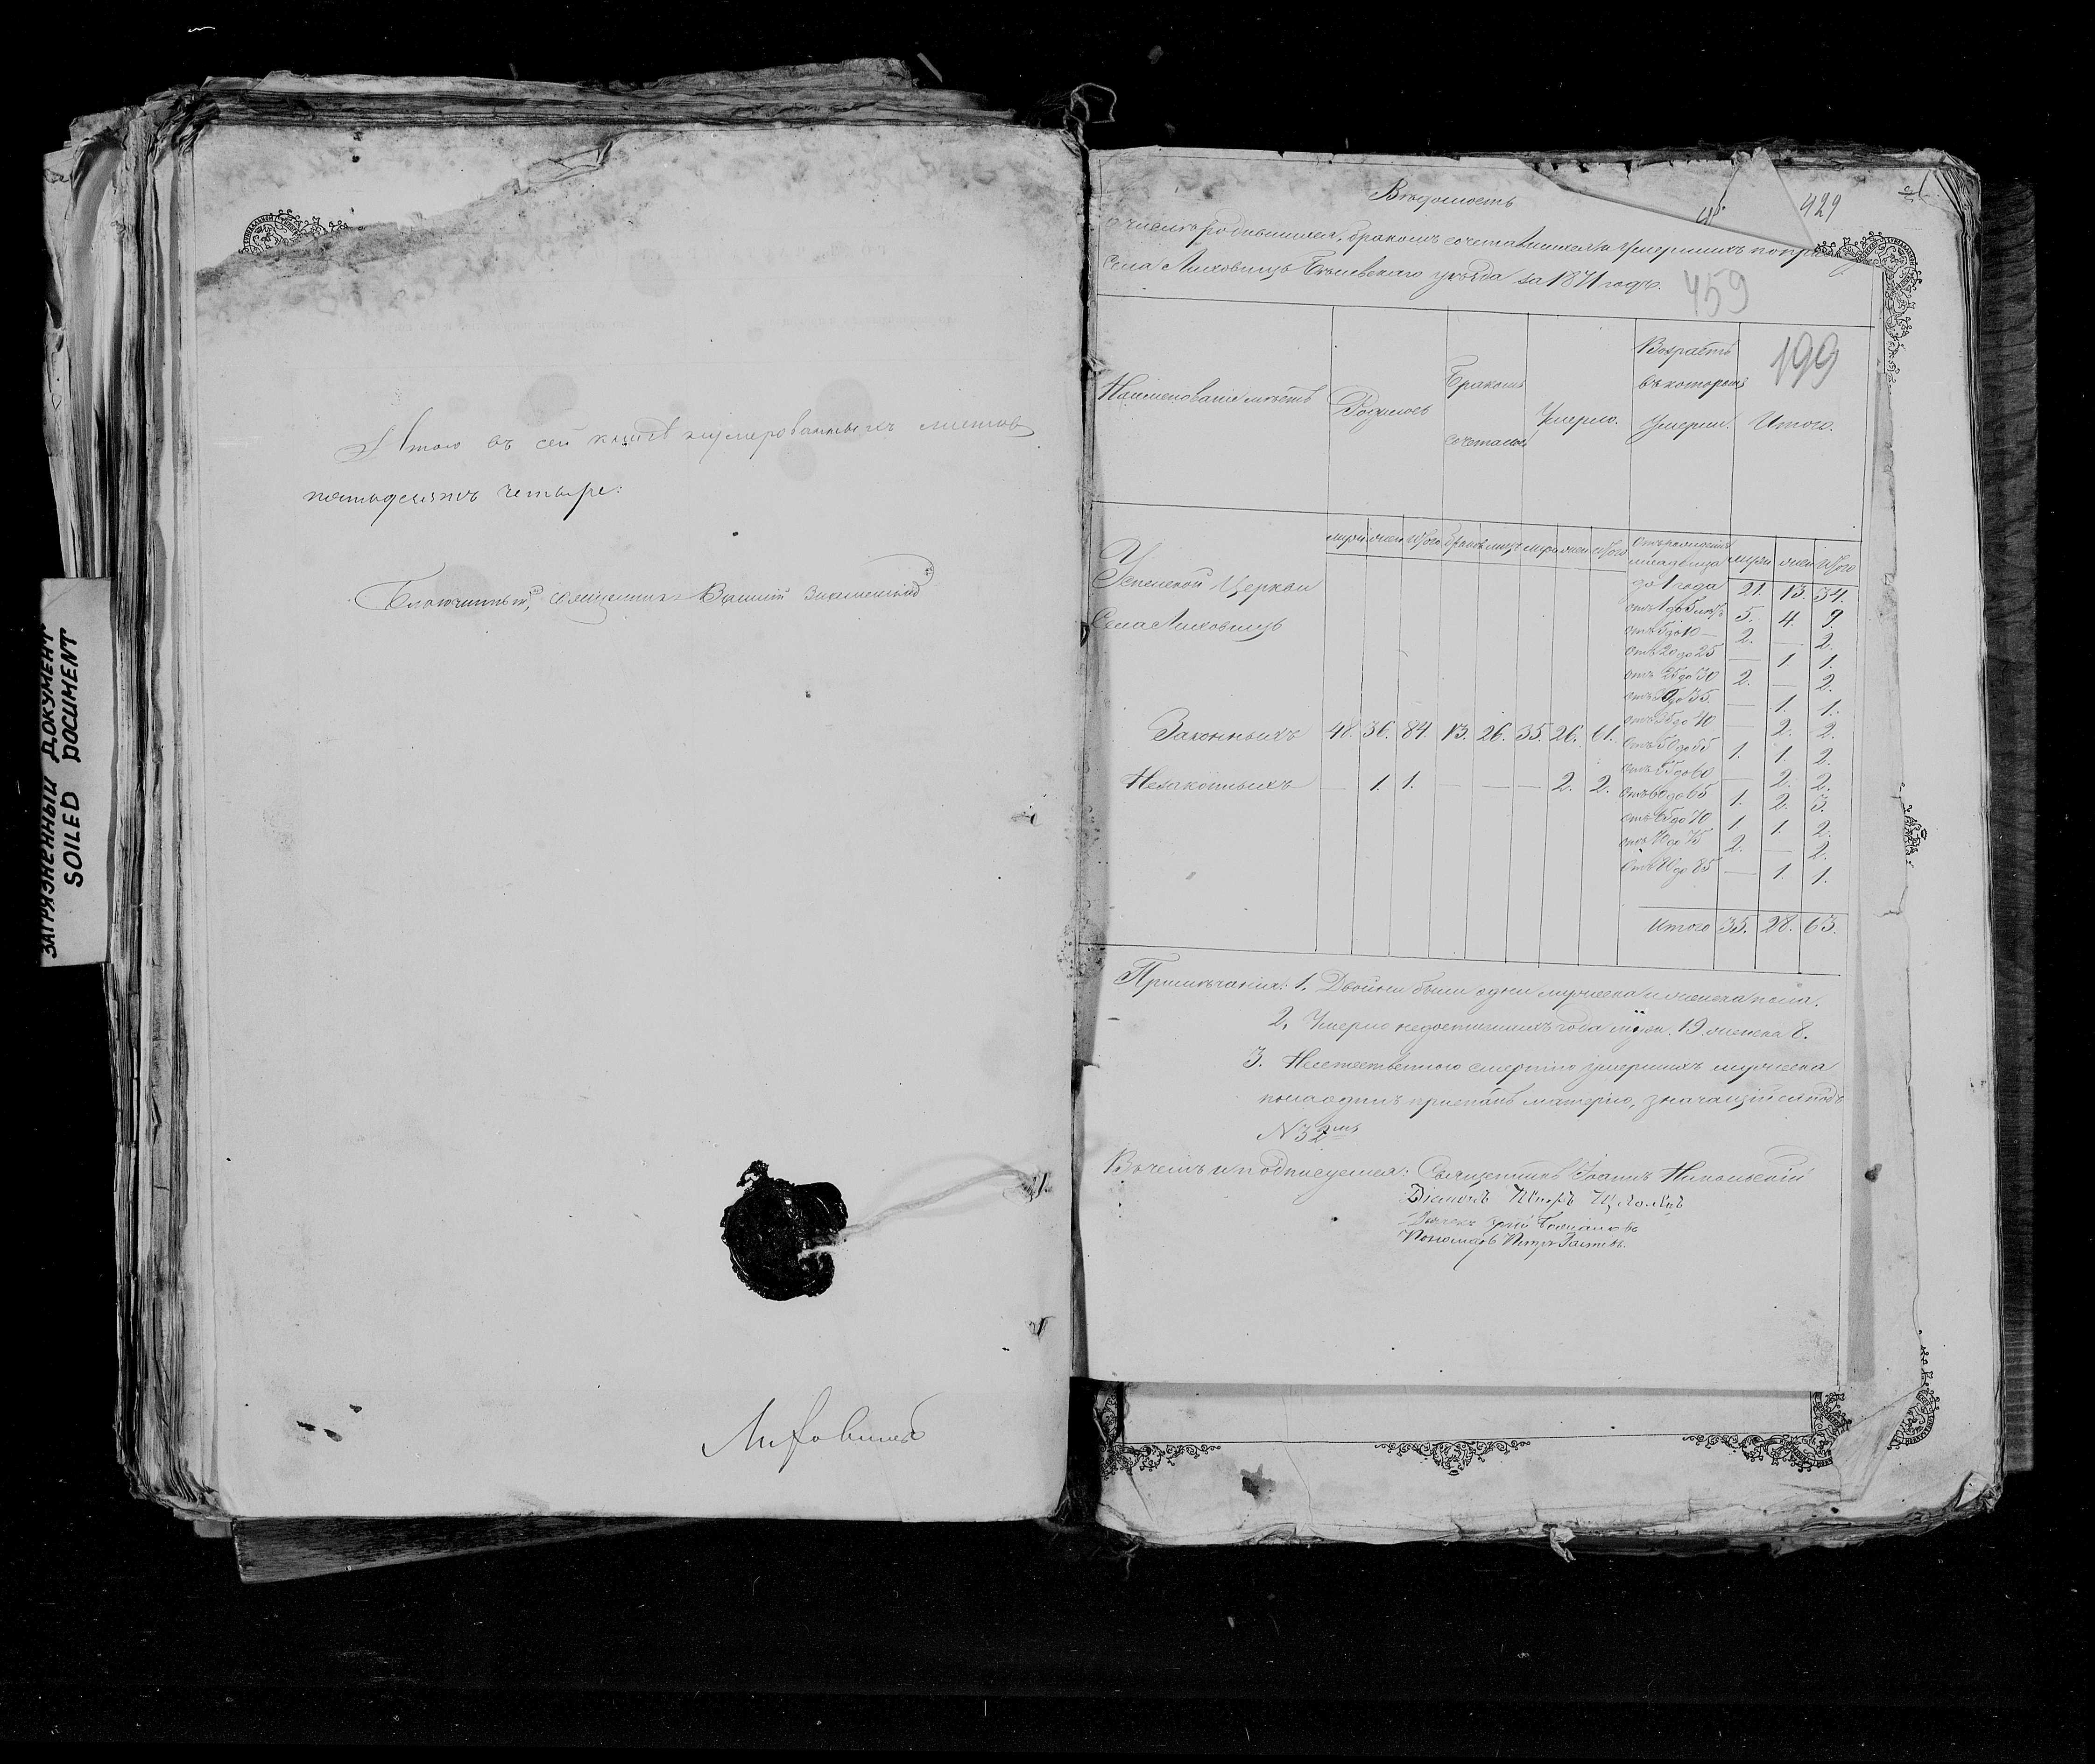 ЗАГРЯЗНЕННЫЙ ДОКУМЕНТ
SOILED DOCUMENT
Итого въ сей книгѣ нумерованныхъ листовъ
пятьдесятъ четыре:
Благочинный, священникъ Василий Знаменский
Лиховищъ
Вѣдомость
429
о числѣ родившихся, бракомъ сочетавшихся и умершихъ по при
Села Лиховищъ Бѣлевскаго уѣзда за 1871 годъ.
459
199
Наименованіе мѣстъ
Родилось
Бракомъ сочеталось
Умерло.
Возрастъ въ которомъ умерли.
Итого.
муж жен Итого браковъ лицъ муж жен Итого
Отъ рожденія младенца муж жен Итого
Успенской Церкви
Села Лиховищъ
до 1 года 21. 13. 34.
отъ 1 до 5 лѣтъ 5. 4. 9.
отъ 5 до 10 2. — 2.
отъ 20 до 25 — 1 1.
отъ 25 до 30 2. — 2.
отъ 30 до 35. — 1. 1.
отъ 35 до 40 — 2. 2.
Законныхъ 48. 36. 84. 13. 26. 35. 26. 61.
отъ 50 до 55 1. 1. 2.
отъ 55 до 60 — 2. 2.
Незаконныхъ — 1. 1. — — — 2. 2.
отъ 60 до 65 1. 2. 3.
отъ 65 до 70 1. 1. 2.
отъ 70 до 75 2. — 2.
отъ 80 до 85 — 1. 1.
Итого 35. 28. 63.
Примѣчанія: 1. Двойни были одни мужеска и женска пола.
2. Умерло недостигшихъ года муж. 19. женска 8.
3. Неестественною смертію умершихъ мужеска
пола одинъ приспанъ матерію, значащійся подъ
N 32мъ
Въ чемъ и подписуемся: Священникъ Іоаннъ Никольскій
Діаконъ Петръ
Дьячекъ
Пономарь Петръ